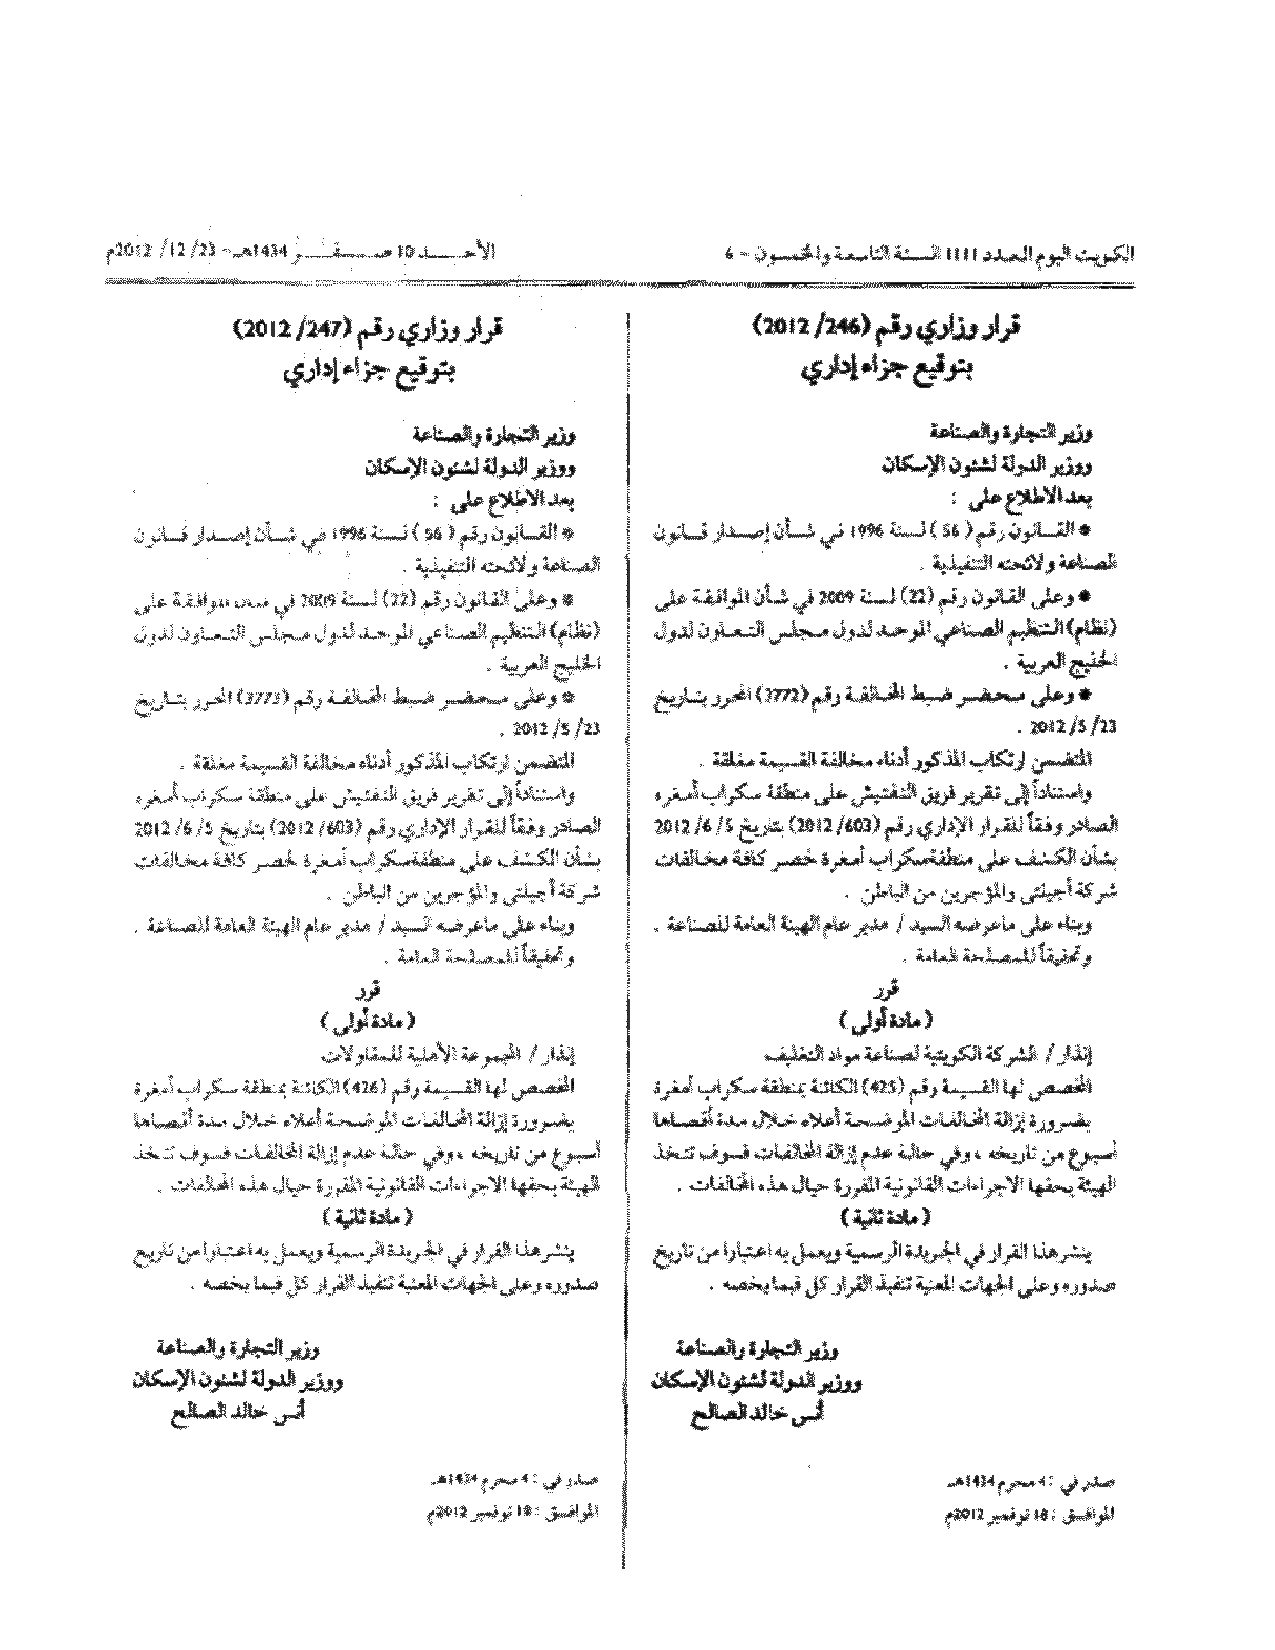 الكويت اليوم العدد 1111 السنة التاسعة والخمسون - 6
الأحد 10 صفر 1434هـ - 23/ 12/ 2012م
قرار وزاري رقم (246/ 2012)
بتوقيع جزاء إداري
وزير التجارة والصناعة
ووزير الدولة لشئون الإسكان
بعد الاطلاع على :
* القانون رقم ( 56 ) لسنة 1996 في شأن إصدار قانون
الصناعة ولائحته التنفيذية .
* وعلى القانون رقم (22) لسنة 2009 في شأن الموافقة على
(نظام) التنظيم الصناعي الموحد لدول مجلس التعاون لدول
الخليج العربية .
* وعلى محضر ضبط المخالفة رقم (3772) المحرر بتاريخ
23/ 5/ 2012 .
المتضمن ارتكاب المذكور أدناه مخالفة القسيمة مغلقة .
واستناداً إلى تقرير فريق التفتيش على منطقة سكراب أمغره
الصادر وفقاً للقرار الإداري رقم (603/ 2012) بتاريخ 5/ 6/ 2012
بشأن الكشف على منطقةسكراب أمغرة لحصر كافة مخالفات
شركة أجيلتي والمؤجرين من الباطن .
وبناء على ماعرضه السيد / مدير عام الهيئة العامة للصناعة .
وتحقيقاً للمصلحة العامة .
قرر
( مادة أولى )
إنذار / الشركة الكويتية لصناعة مواد التغليف
المخصص لها القسيمة رقم (425) الكائنة بمنطقة سكراب أمغرة
بضرورة إزالة المخالفات الموضحة أعلاه خلال مدة أقصاها
أسبوع من تاريخه ، وفي حالة عدم إزالة المخالفات فسوف تتخذ
الهيئة بحقها الاجراءات القانونية المقررة حيال هذه المخالفات .
( مادة ثانية )
ينشر هذا القرار في الجريدة الرسمية ويعمل به اعتبارا من تاريخ
صدوره وعلى الجهات المعنية تنفيذ القرار كل فيما يخصه .
وزير التجارة والصناعة
ووزير الدولة لشئون الإسكان
أنس خالد الصالح
صدر في : 4 محرم 1434هـ
الموافق : 18 نوفمبر 2012م
قرار وزاري رقم (247/ 2012)
بتوقيع جزاء إداري
وزير التجارة والصناعة
ووزير الدولة لشئون الإسكان
بعد الاطلاع على :
* القانون رقم ( 56 ) لسنة 1996 في شأن إصدار قانون
الصناعة ولائحته التنفيذية .
* وعلى القانون رقم (22) لسنة 2009 في شأن الموافقة على
(نظام) التنظيم الصناعي الموحد لدول مجلس التعاون لدول
الخليج العربية .
* وعلى محضر ضبط المخالفة رقم (3773) المحرر بتاريخ
23/ 5/ 2012 .
المتضمن ارتكاب المذكور أدناه مخالفة القسيمة مغلقة .
واستناداً إلى تقرير فريق التفتيش على منطقة سكراب أمغره
الصادر وفقاً للقرار الإداري رقم (603/ 2012) بتاريخ 5/ 6/ 2012
بشأن الكشف على منطقةسكراب أمغرة لحصر كافة مخالفات
شركة أجيلتي والمؤجرين من الباطن .
وبناء على ماعرضه السيد / مدير عام الهيئة العامة للصناعة .
وتحقيقاً للمصلحة العامة .
قرر
( مادة أولى )
إنذار / المجموعة الأهلية للمقاولات
المخصص لها القسيمة رقم (426) الكائنة بمنطقة سكراب أمغرة
بضرورة إزالة المخالفات الموضحة أعلاه خلال مدة أقصاها
أسبوع من تاريخه ، وفي حالة عدم إزالة المخالفات فسوف تتخذ
الهيئة بحقها الاجراءات القانونية المقررة حيال هذه المخالفات .
( مادة ثانية )
ينشر هذا القرار في الجريدة الرسمية ويعمل به اعتبارا من تاريخ
صدوره وعلى الجهات المعنية تنفيذ القرار كل فيما يخصه .
وزير التجارة والصناعة
ووزير الدولة لشئون الإسكان
أنس خالد الصالح
صدر في : 4 محرم 1434هـ
الموافق : 18 نوفمبر 2012م